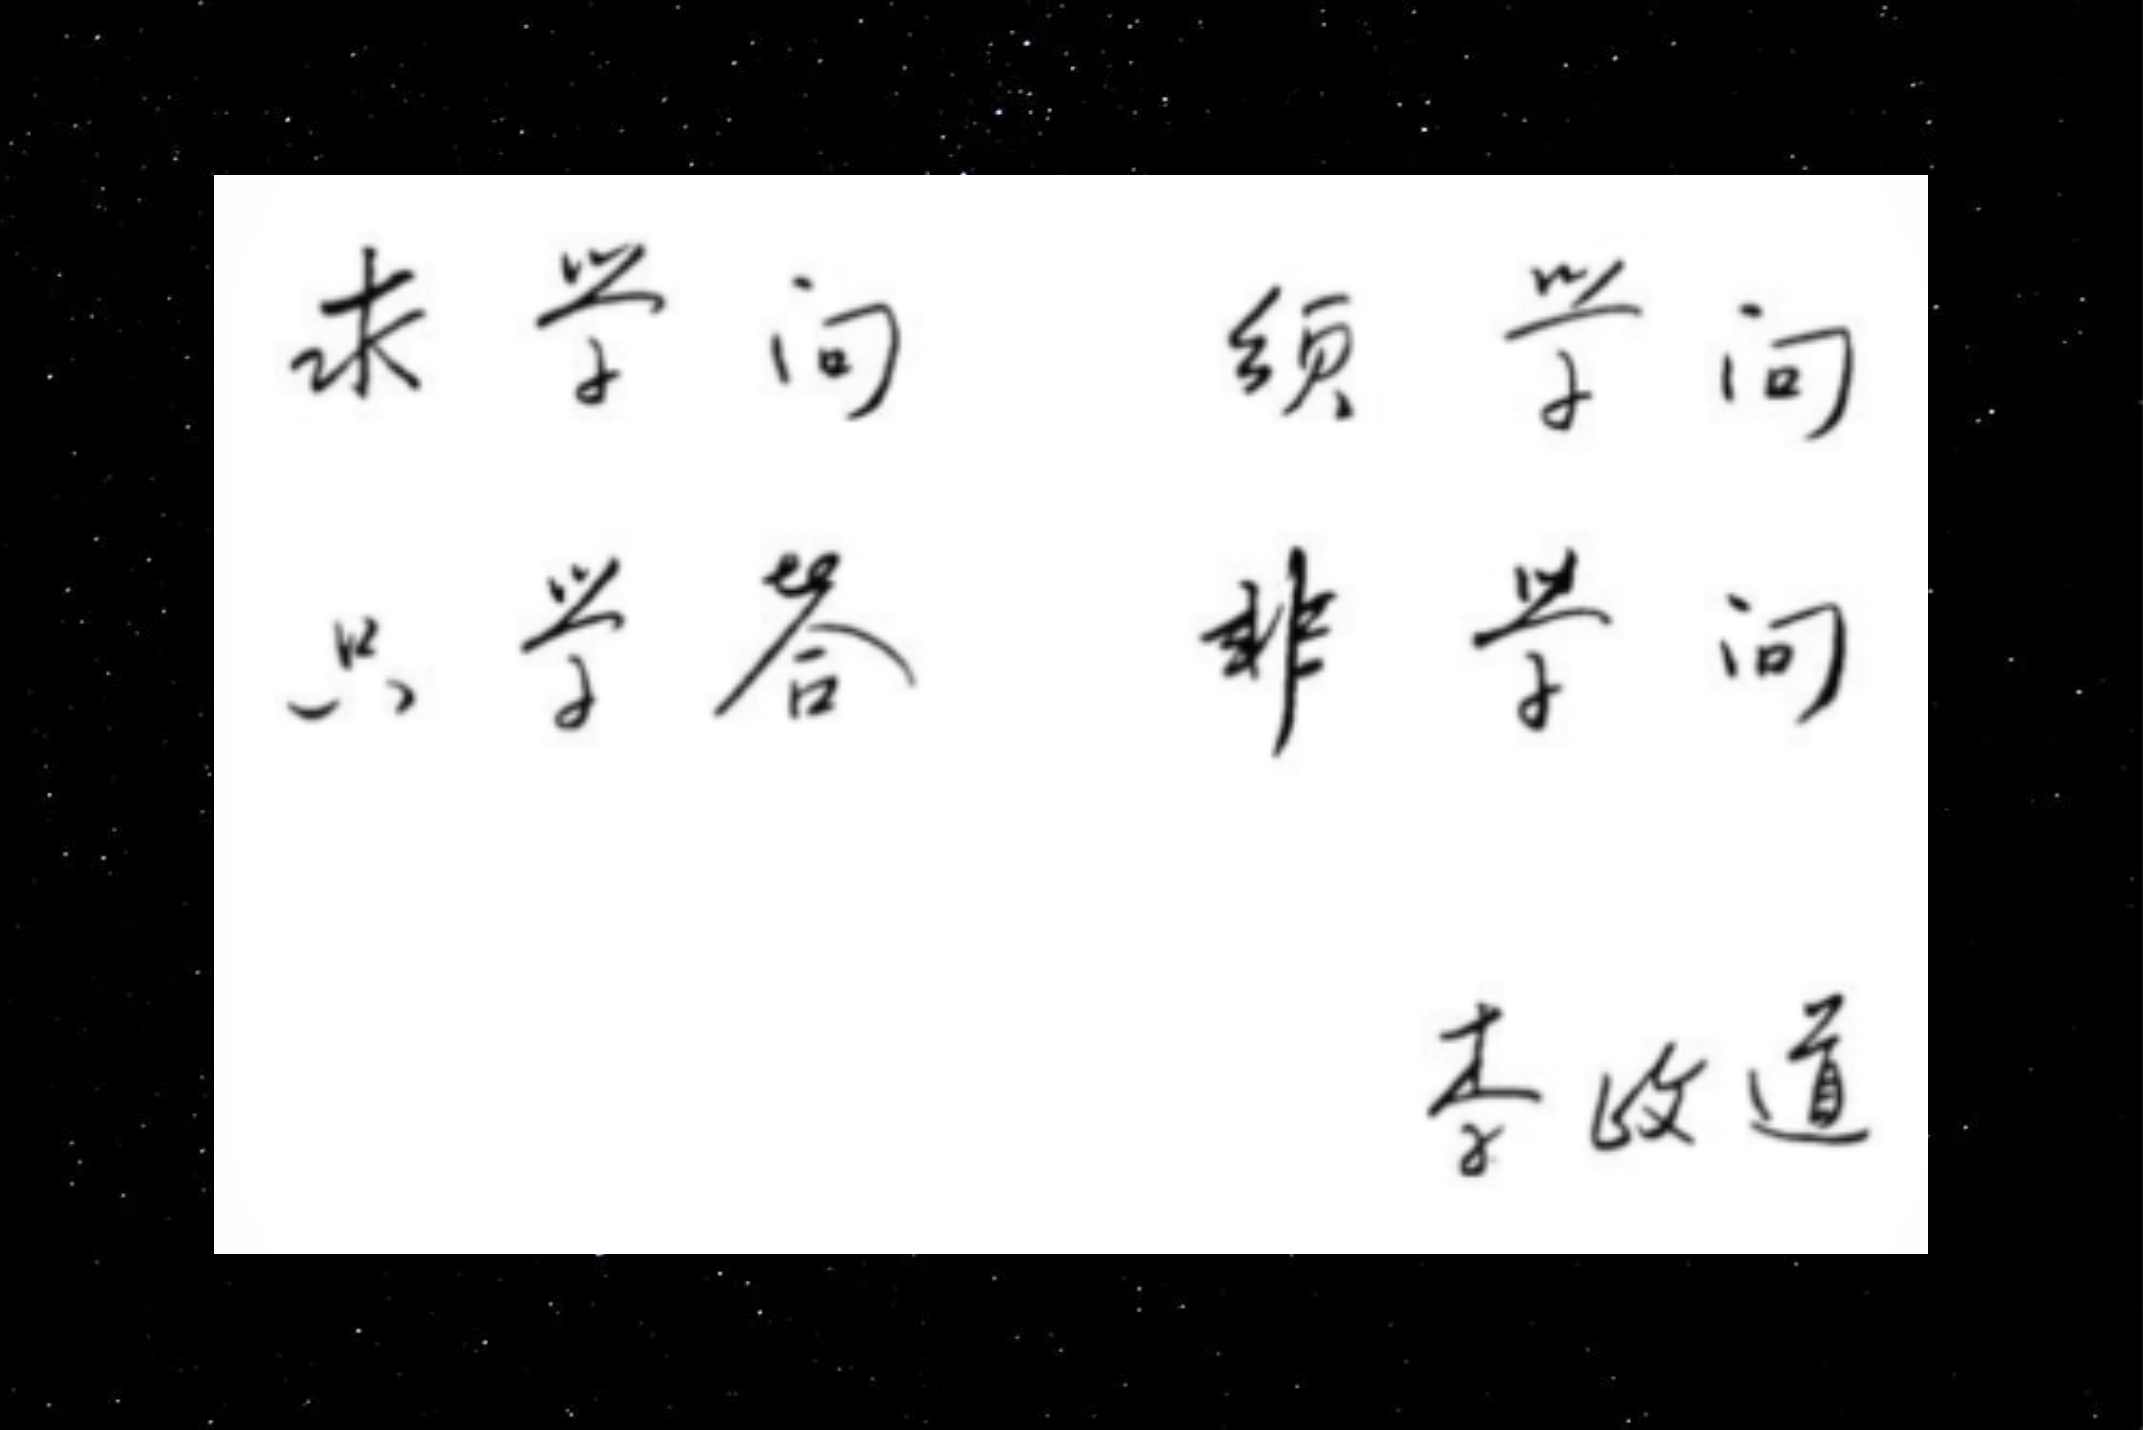 求学问 须学问
只学答 非学问
李政道